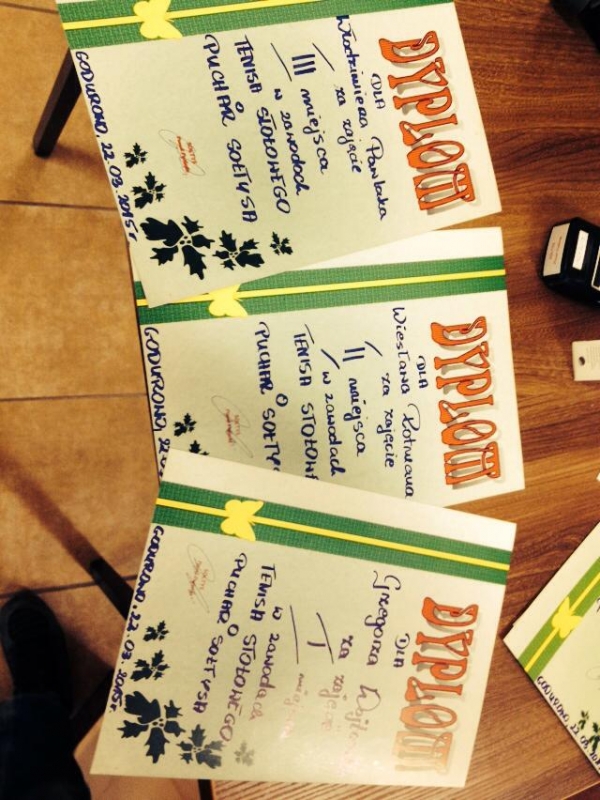 DYPLOM
DLA
Włodzimierza Pawlaka
za zajęcie
III miejsca
w zawodach
TENISA STOŁOWEGO
O
PUCHAR SOŁTYSA
GODUROWO, 22.03.2015r
DYPLOM
DLA
Wiesława
za zajęcie
II miejsca
w zawodach
TENISA STOŁOW
O
PUCHAR SOŁTYS
GODUROWO, 22.03
DYPLOM
DLA
Grzegorza
za zajęcie
I miejsca
w zawodach
TENISA STOŁOWEGO
O
PUCHAR SOŁTYSA
GODUROWO, 22.03.2015r
GODUROWO 22.03.2015